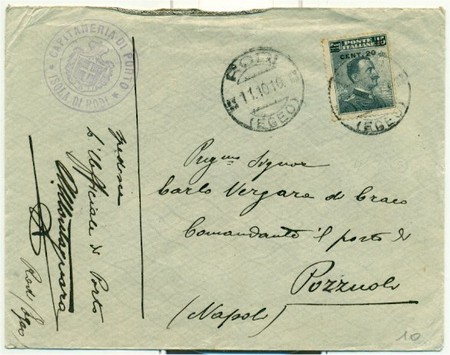 CAPITANERIA DI PORTO
ISOLA DI RODI
RODI
11.10.16
(EGEO)
POSTE
ITALIANE
15
CENT. 20
(EGEO)
Preg.mo Signor
Carlo Vergara di Craco
Comandante il porto di
Pozzuoli
(Napoli)
Spedisce
L'Ufficiale di Porto
Rodi Egeo
10